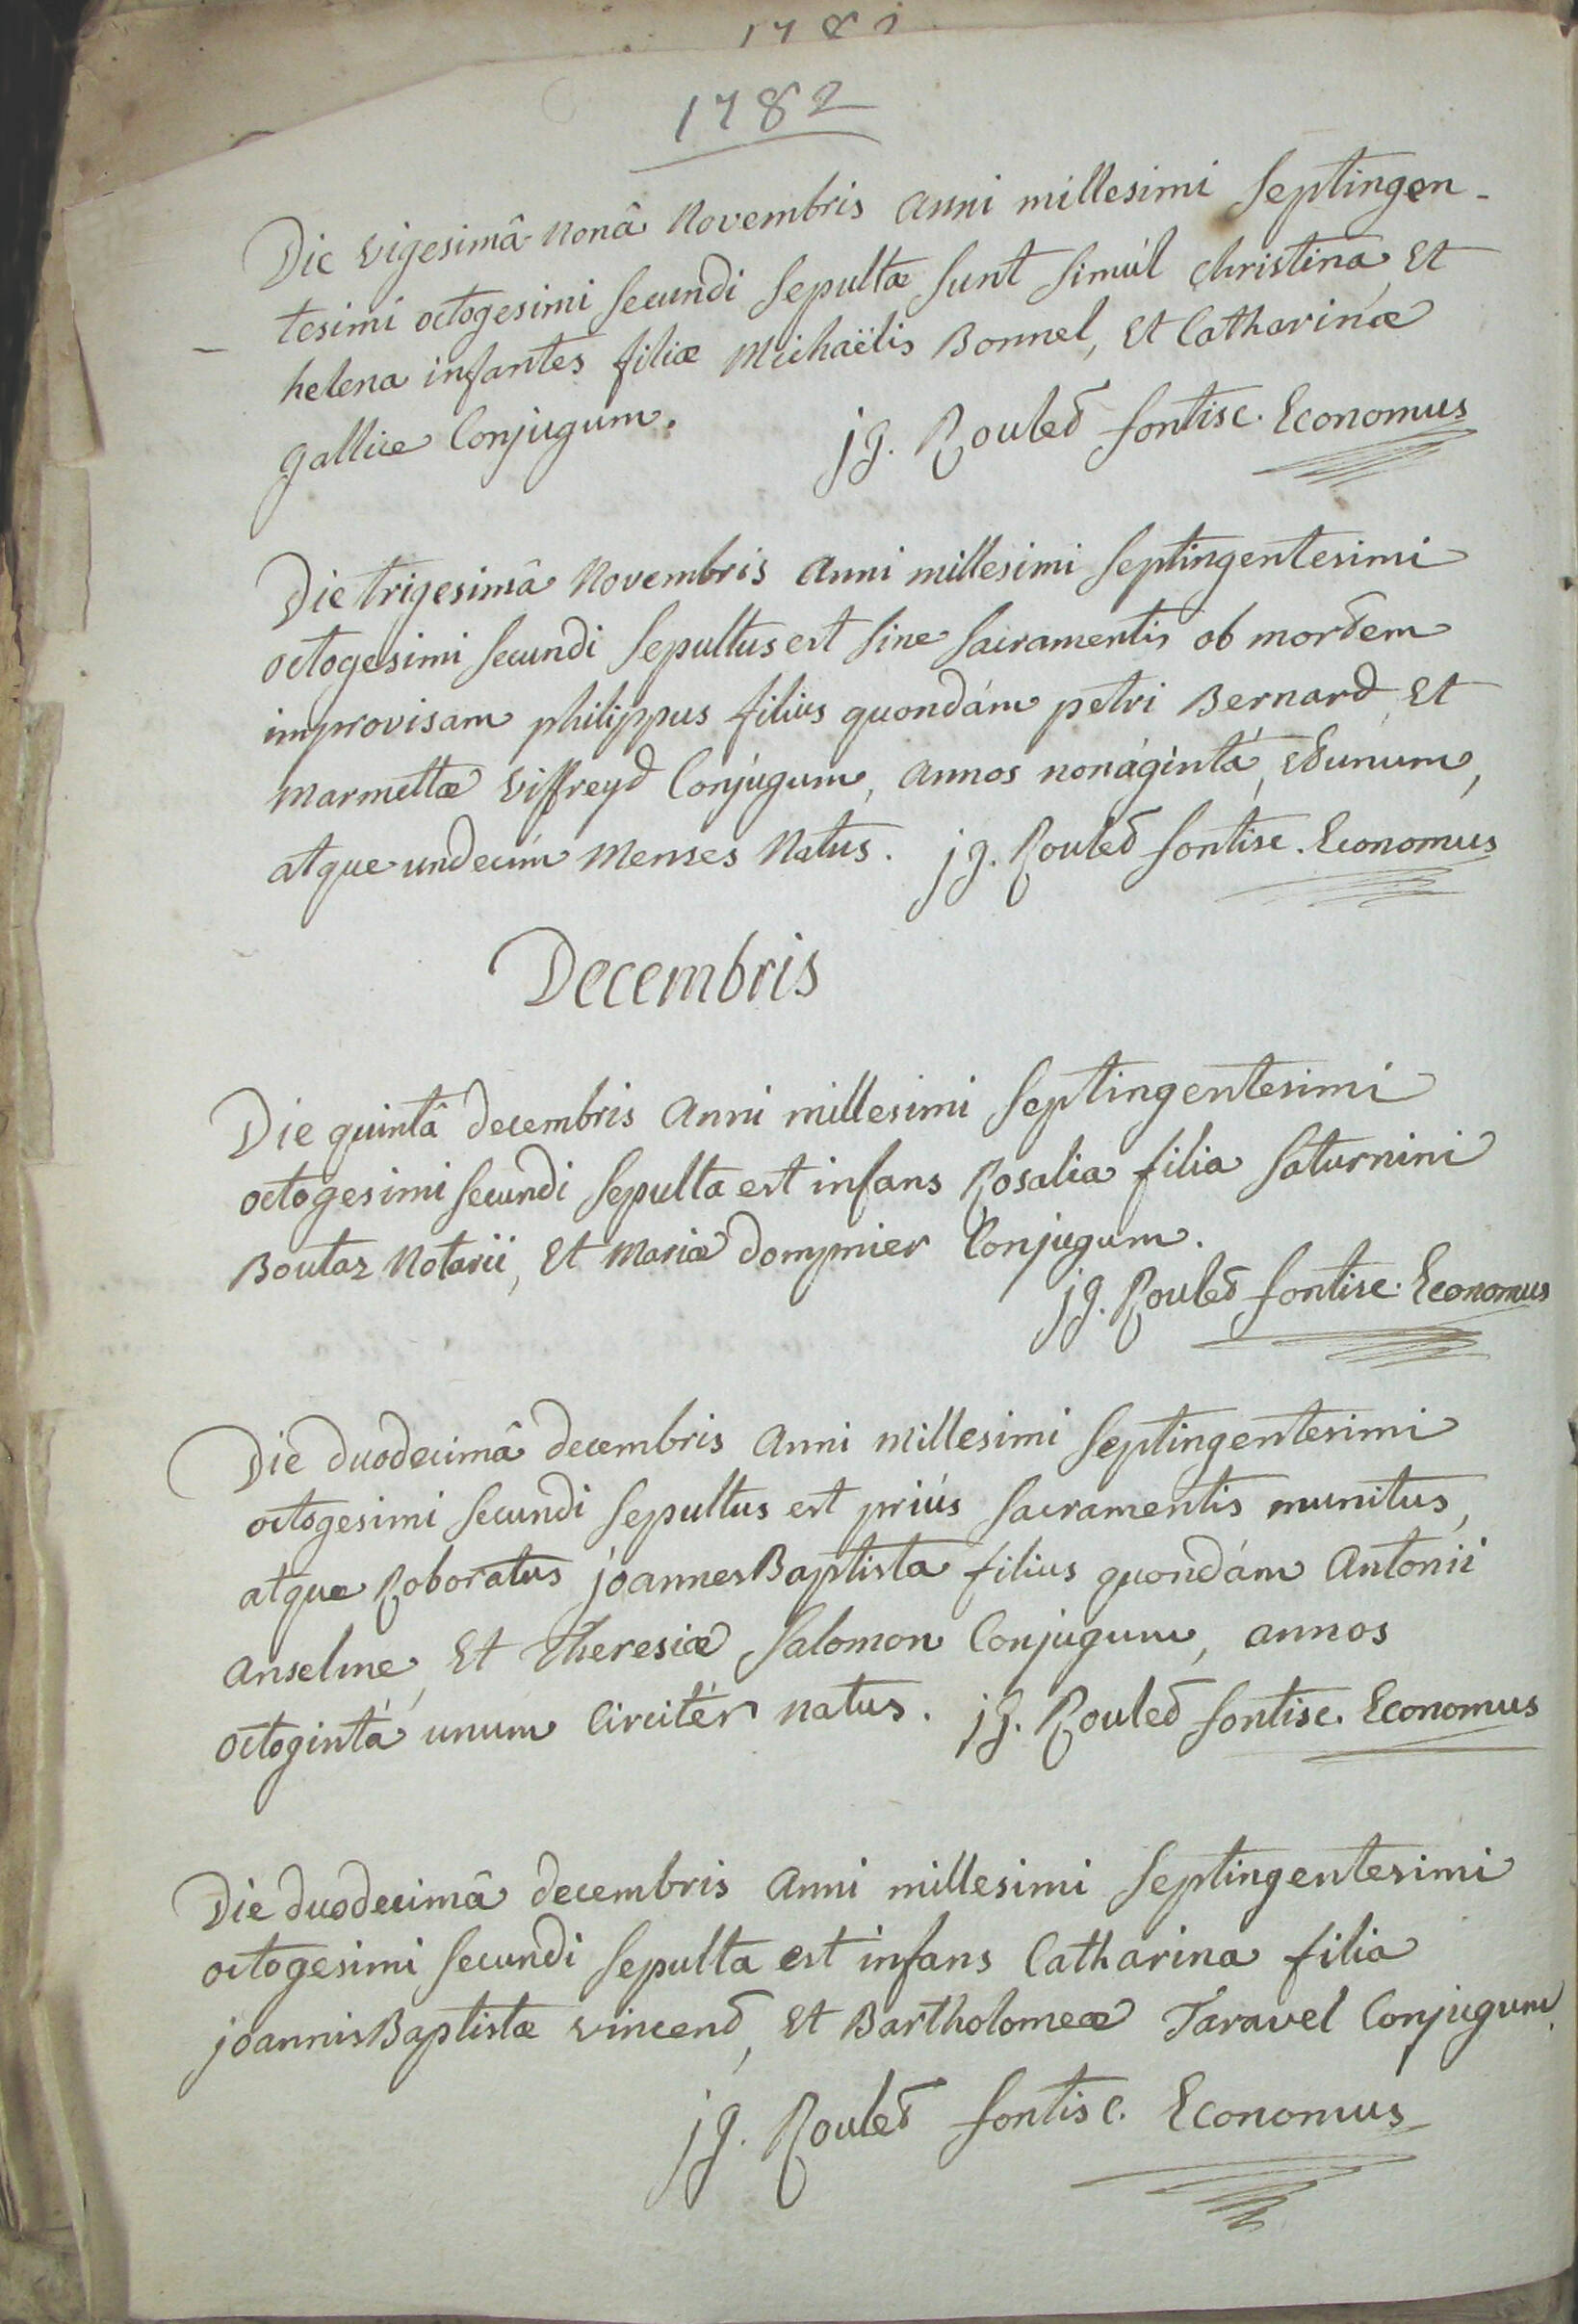 1782
1782
Die vigesimâ nonâ Novembris Anni millesimi septingen-
tesimi octogesimi secundi sepultæ sunt simúl christina, Et
helena infantes filiæ Michaëlis Bonnel, Et Catharinæ
gallice Conjugum.
jg. Rouled fontisc. Economus
Die trigesimâ Novembris Anni millesimi septingentesimi
octogesimi secundi sepultus est sine sacramentis ob mortem
improvisam philippus filius quondám petri Bernard, Et
Marmettæ Viffreyd Conjugum, annos nonágintá, Et unum,
atque undecim Menses Natus. jg. Rouled fontisc. Economus
Decembris
Die quintâ decembris Anni millesimi septingentesimi
octogesimi secundi sepulta est infans Rosalia filia saturnini
Boutaz Notarii, Et Mariæ dompnier Conjugum.
jg. Rouled fontisc. Economus
Die duodecimâ decembris Anni Millesimi septingentesimi
octogesimi secundi sepultus est priús sacramentis munitus,
atque Roboratus joannes Baptista filius quondám Antonii
Anselme, Et Theresiæ Salomon Conjugum, annos
octogintá unum Circitér natus. jg. Rouled fontisc. Economus
Die duodecimâ decembris Anni millesimi septingentesimi
octogesimi secundi sepulta est infans Catharina filia
joannis Baptistæ vincend, Et Bartholomeæ Taravel Conjugum.
jg. Rouled fontisc. Economus